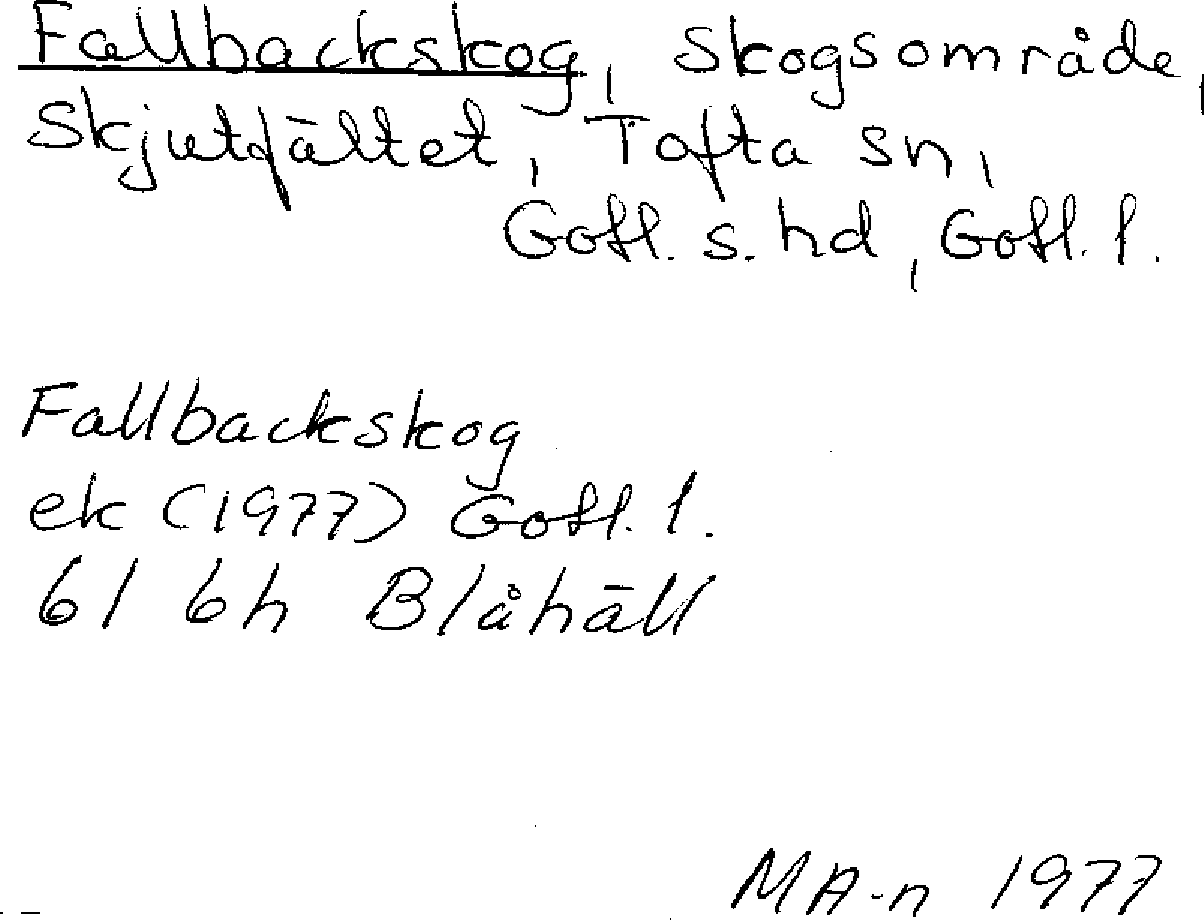 Fallbackskog, skogsområde,
Skjutfältet, Tofta sn,
Gotl. s. hd, Gotl. l.
Fallbackskog
ek (1977) Gotl. l.
6I 6h Blåhäll
MA-n 1977